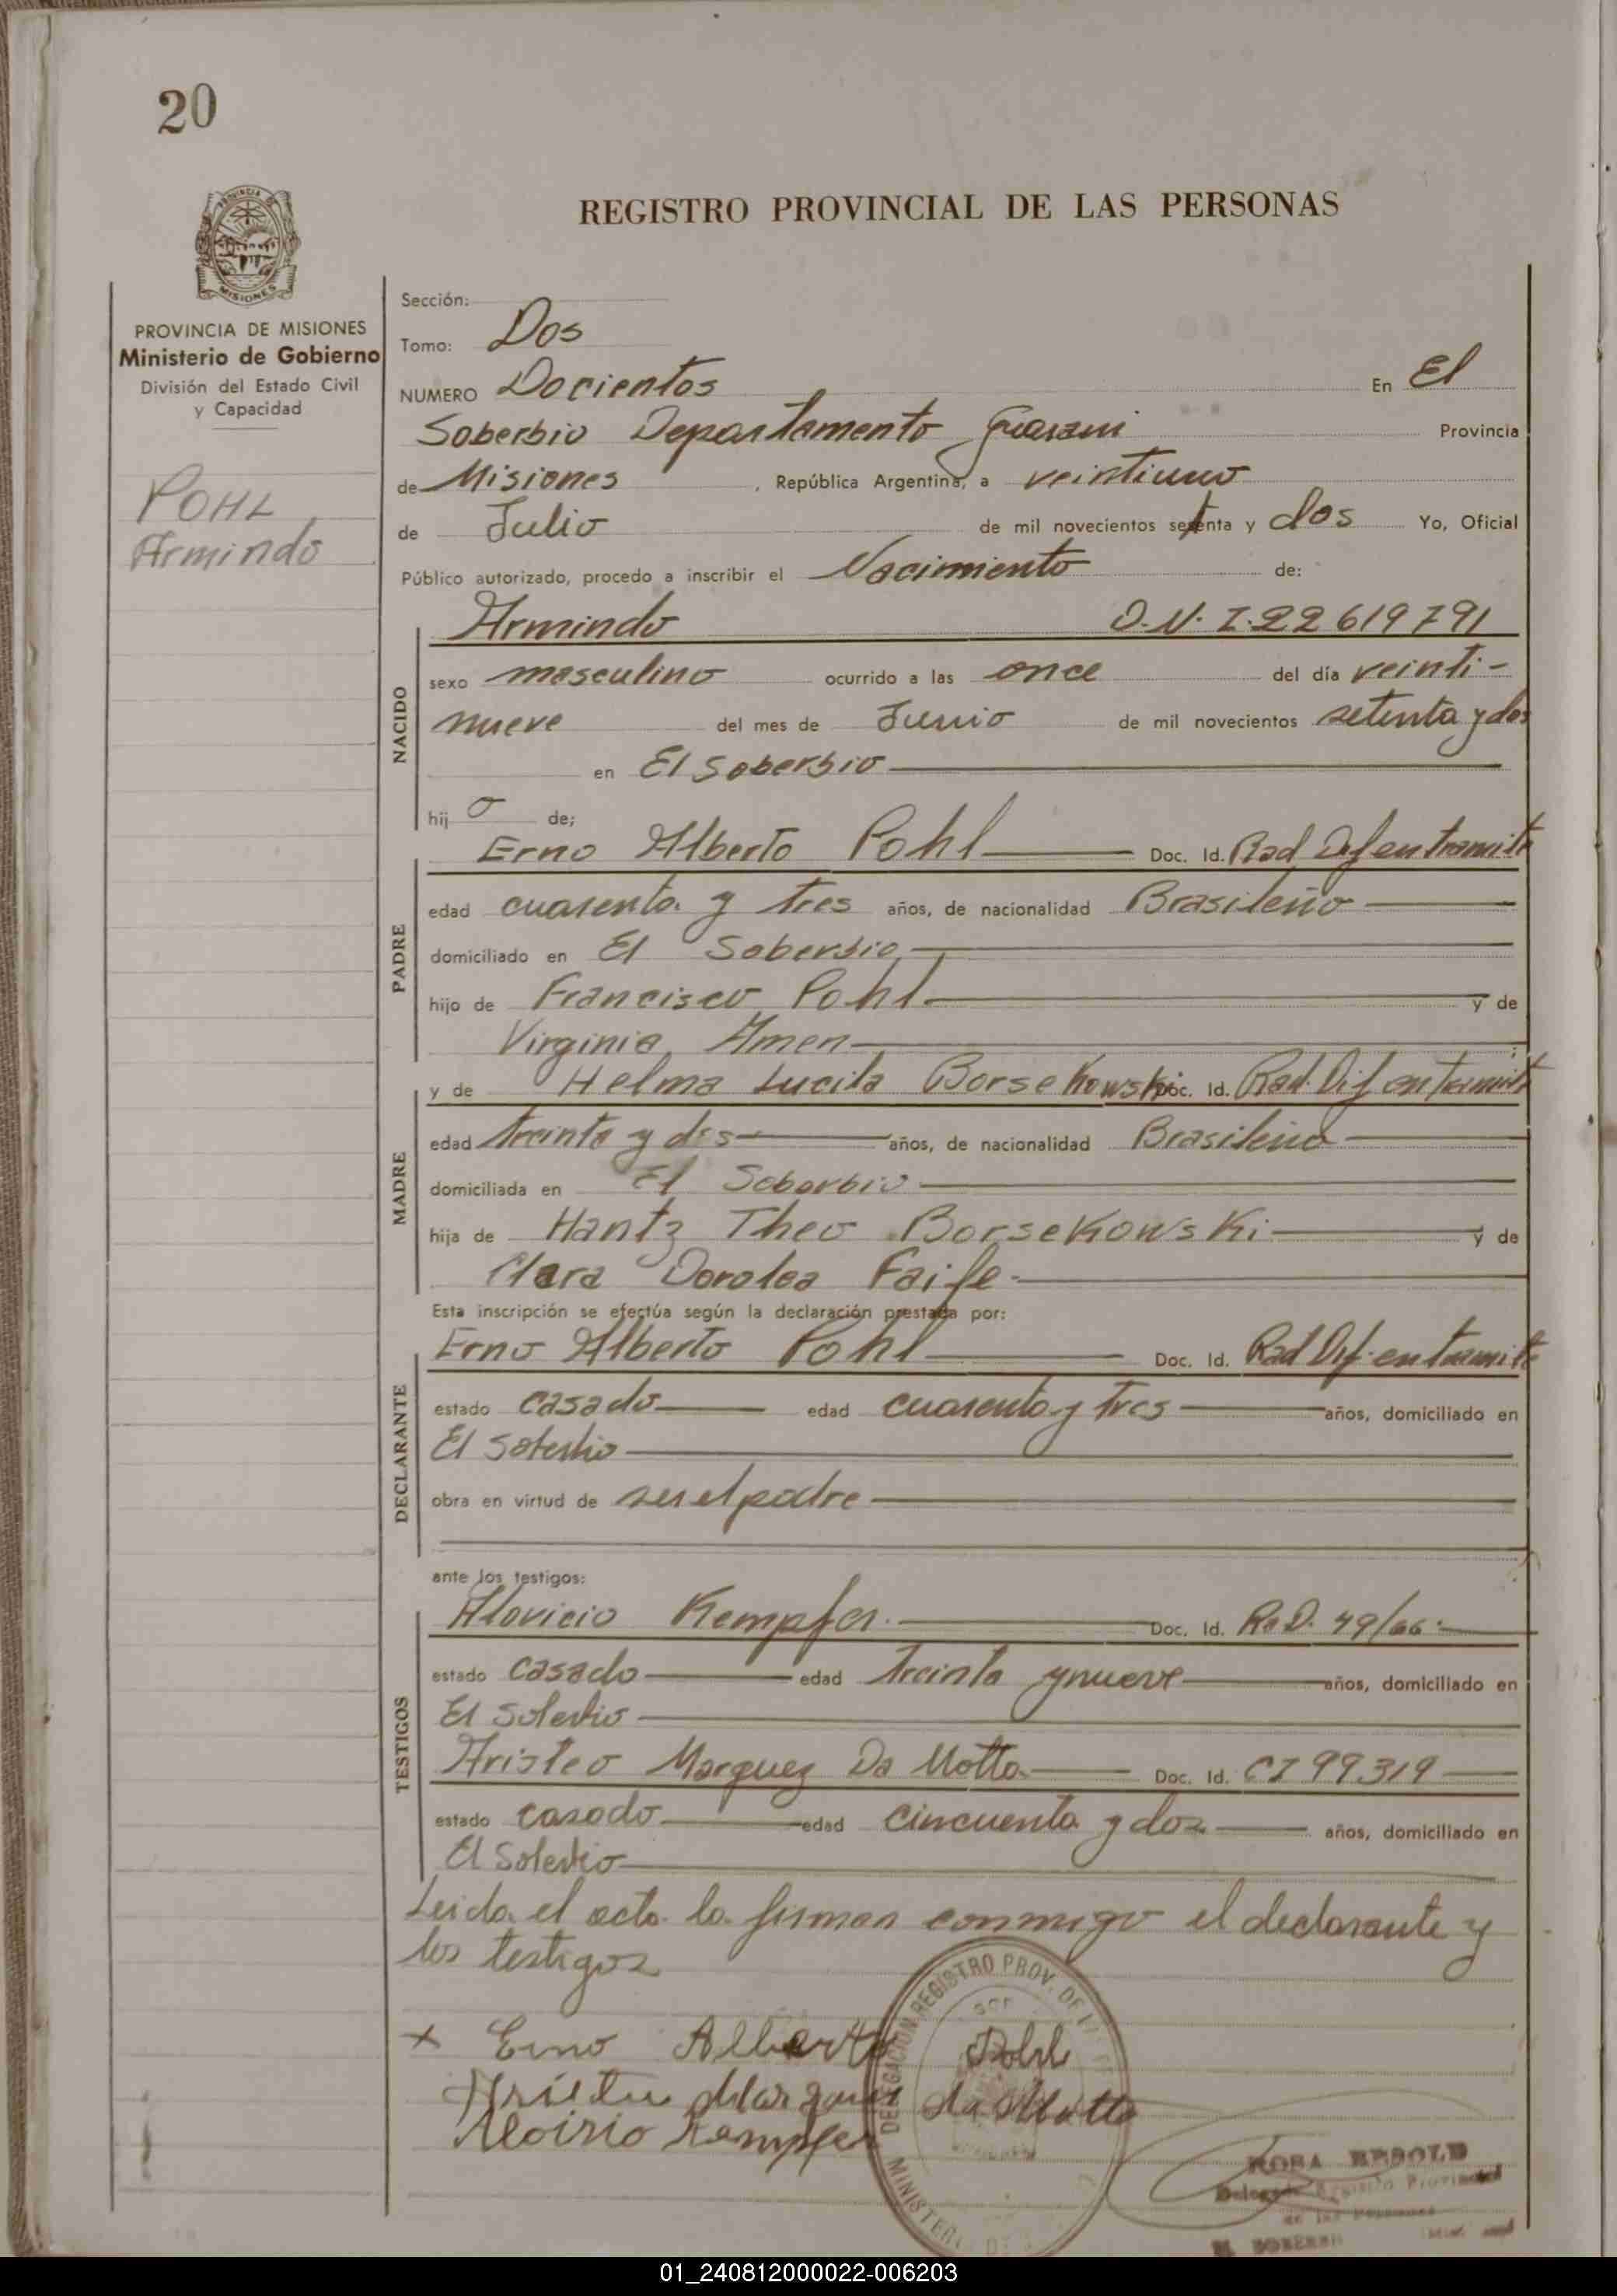 20
PROVINCIA DE MISIONES
MISIONES
REGISTRO PROVINCIAL DE LAS PERSONAS
PROVINCIA DE MISIONES
Ministerio de Gobierno
División del Estado Civil
y Capacidad
POHL
Armindo
Sección:
Tomo: Dos
NUMERO Docientos En El
Soberbio Departamento Guarani Provincia
de Misiones, República Argentina, a veintiuno
de Julio de mil novecientos setenta y dos Yo, Oficial
Público autorizado, procedo a inscribir el Nacimiento de:
Armindo D.N.I.22619791
NACIDO
sexo masculino ocurrido a las once del día veinti-
nueve del mes de Junio de mil novecientos setenta y dos
en El Soberbio
hijo de;
Erno Alberto Pohl Doc. Id. Rad Dif en tramite
PADRE
edad cuarenta y tres años, de nacionalidad Brasileño
domiciliado en El Soberbio
hijo de Francisco Pohl y de
Virginia Amen
y de Helma Lucila Borsekowski Doc. Id. Rad. Dif en tramite
MADRE
edad treinta y dos años, de nacionalidad Brasileña
domiciliada en El Soberbio
hija de Hantz Theo Borsekowski y de
Clara Dorotea Faife
Esta inscripción se efectúa según la declaración prestada por:
Erno Alberto Pohl Doc. Id. Rad Dif. en tramite
DECLARANTE
estado casado edad cuarenta y tres años, domiciliado en
El Soberbio
obra en virtud de ser el padre
ante los testigos:
Alovicio Kempfer. Doc. Id. RaD. 49/66.
TESTIGOS
estado casado edad treinta y nueve años, domiciliado en
El Soberbio
Aristeo Marquez Da Motta Doc. Id. CI 99319
estado casado edad cincuenta y dos años, domiciliado en
El Soberbio
Leida el acta la firman conmigo el declarante y
los testigos
x Erno Alberto Pohl
Aristeu Marques da Motta
Aloisio Kempfer
DELEGACION REGISTRO PROV. DE
ROSA BESOLD
01_240812000022-006203